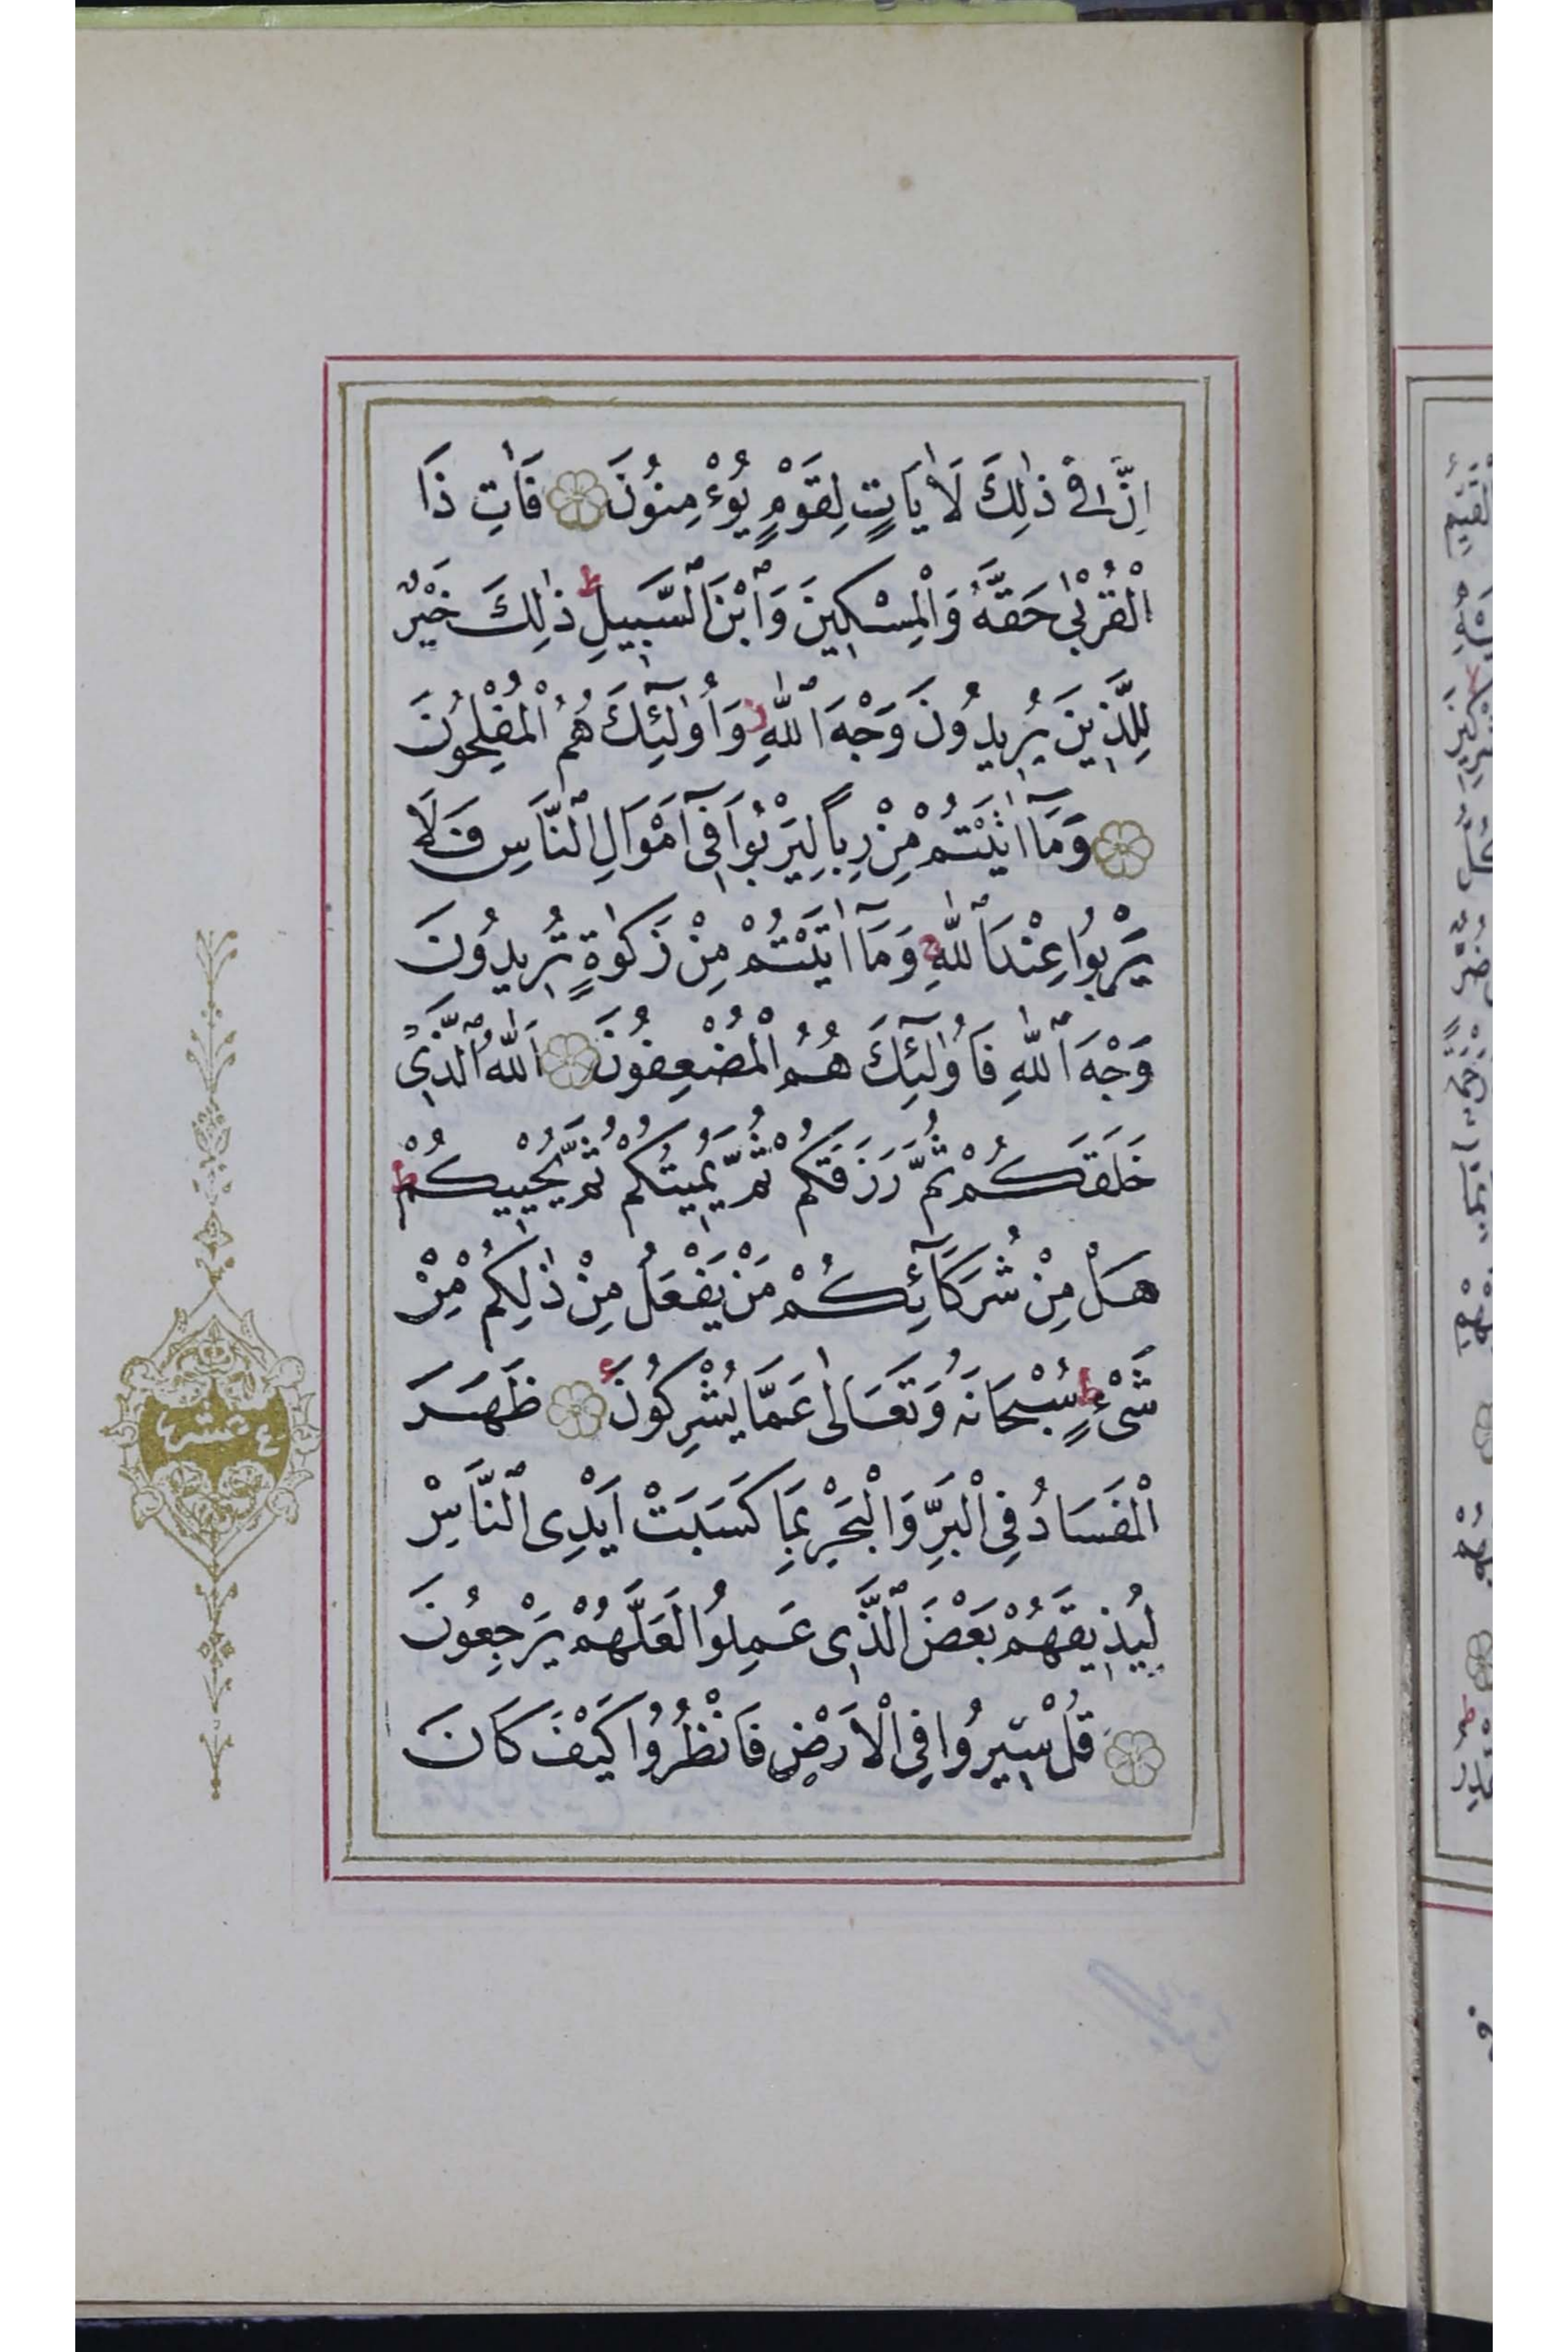 اِنَّ فٖي ذٰلِكَ لَاٰيَاتٍ لِقَوْمٍ يُؤْمِنُونَ فَاٰتِ ذَا
الْقُرْبٰى حَقَّهُ وَالْمِسْكٖينَ وَابْنَ السَّبٖيلِ ط ذٰلِكَ خَيْرٌ
لِلَّذٖينَ يُرٖيدُونَ وَجْهَ اللّٰهِ ز وَاُولٰٓئِكَ هُمُ الْمُفْلِحُونَ
وَمَٓا اٰتَيْتُمْ مِنْ رِبًا لِيَرْبُوَا فٖٓي اَمْوَالِ النَّاسِ فَلَا
يَرْبُوا عِنْدَ اللّٰهِ ج وَمَٓا اٰتَيْتُمْ مِنْ زَكٰوةٍ تُرٖيدُونَ
وَجْهَ اللّٰهِ فَاُولٰٓئِكَ هُمُ الْمُضْعِفُونَ اَللّٰهُ الَّذٖي
خَلَقَكُمْ ثُمَّ رَزَقَكُمْ ثُمَّ يُمٖيتُكُمْ ثُمَّ يُحْيٖيكُمْ ط
هَلْ مِنْ شُرَكَٓائِكُمْ مَنْ يَفْعَلُ مِنْ ذٰلِكُمْ مِنْ
شَیْءٍ ط سُبْحَانَهُ وَتَعَالٰى عَمَّا يُشْرِكُونَ ع ظَهَرَ
الْفَسَادُ فِي الْبَرِّ وَالْبَحْرِ بِمَا كَسَبَتْ اَيْدِي النَّاسِ
لِيُذٖيقَهُمْ بَعْضَ الَّذٖي عَمِلُوا لَعَلَّهُمْ يَرْجِعُونَ
قُلْ سٖيرُوا فِي الْاَرْضِ فَانْظُرُوا كَيْفَ كَانَ
عشر